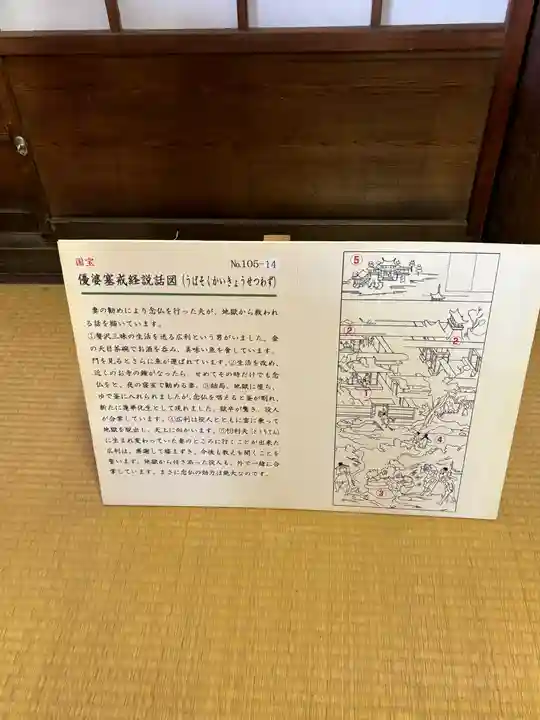 国宝
No.105-14
優婆塞戒経説話図(うばそくかいきょうせつわず)
妻の勧めにより念仏を行った夫が、地獄から救われ
る話を描いています。
①贅沢三昧の生活を送る広利という男がいました。金
の天目茶碗でお酒を呑み、美味い魚を食しています。
門を見るとさらに魚が運ばれています。②生活を改め、
近くのお寺の鐘がなったら、せめてその時だけでも念
仏をと、夜の寝室で勧める妻。③結局、地獄に堕ち、
ゆで釜にいれられましたが、念仏を唱えると釜が割れ、
新たに蓮華化生として現れました。獄卒が驚き、役人
が合掌しています。④広利は役人とともに雲に乗って
地獄を脱出し、天上に向かいます。⑤忉利天(とうりてん)
に生まれ変わっていた妻のところに行くことが出来た
広利は、感謝して跪まずき、今後も教えを聞くことを
誓います。地獄から付き添った役人も、外で一緒に合
掌しています。まさに念仏の効力は絶大なのです。
⑤
2
2
1
4
3